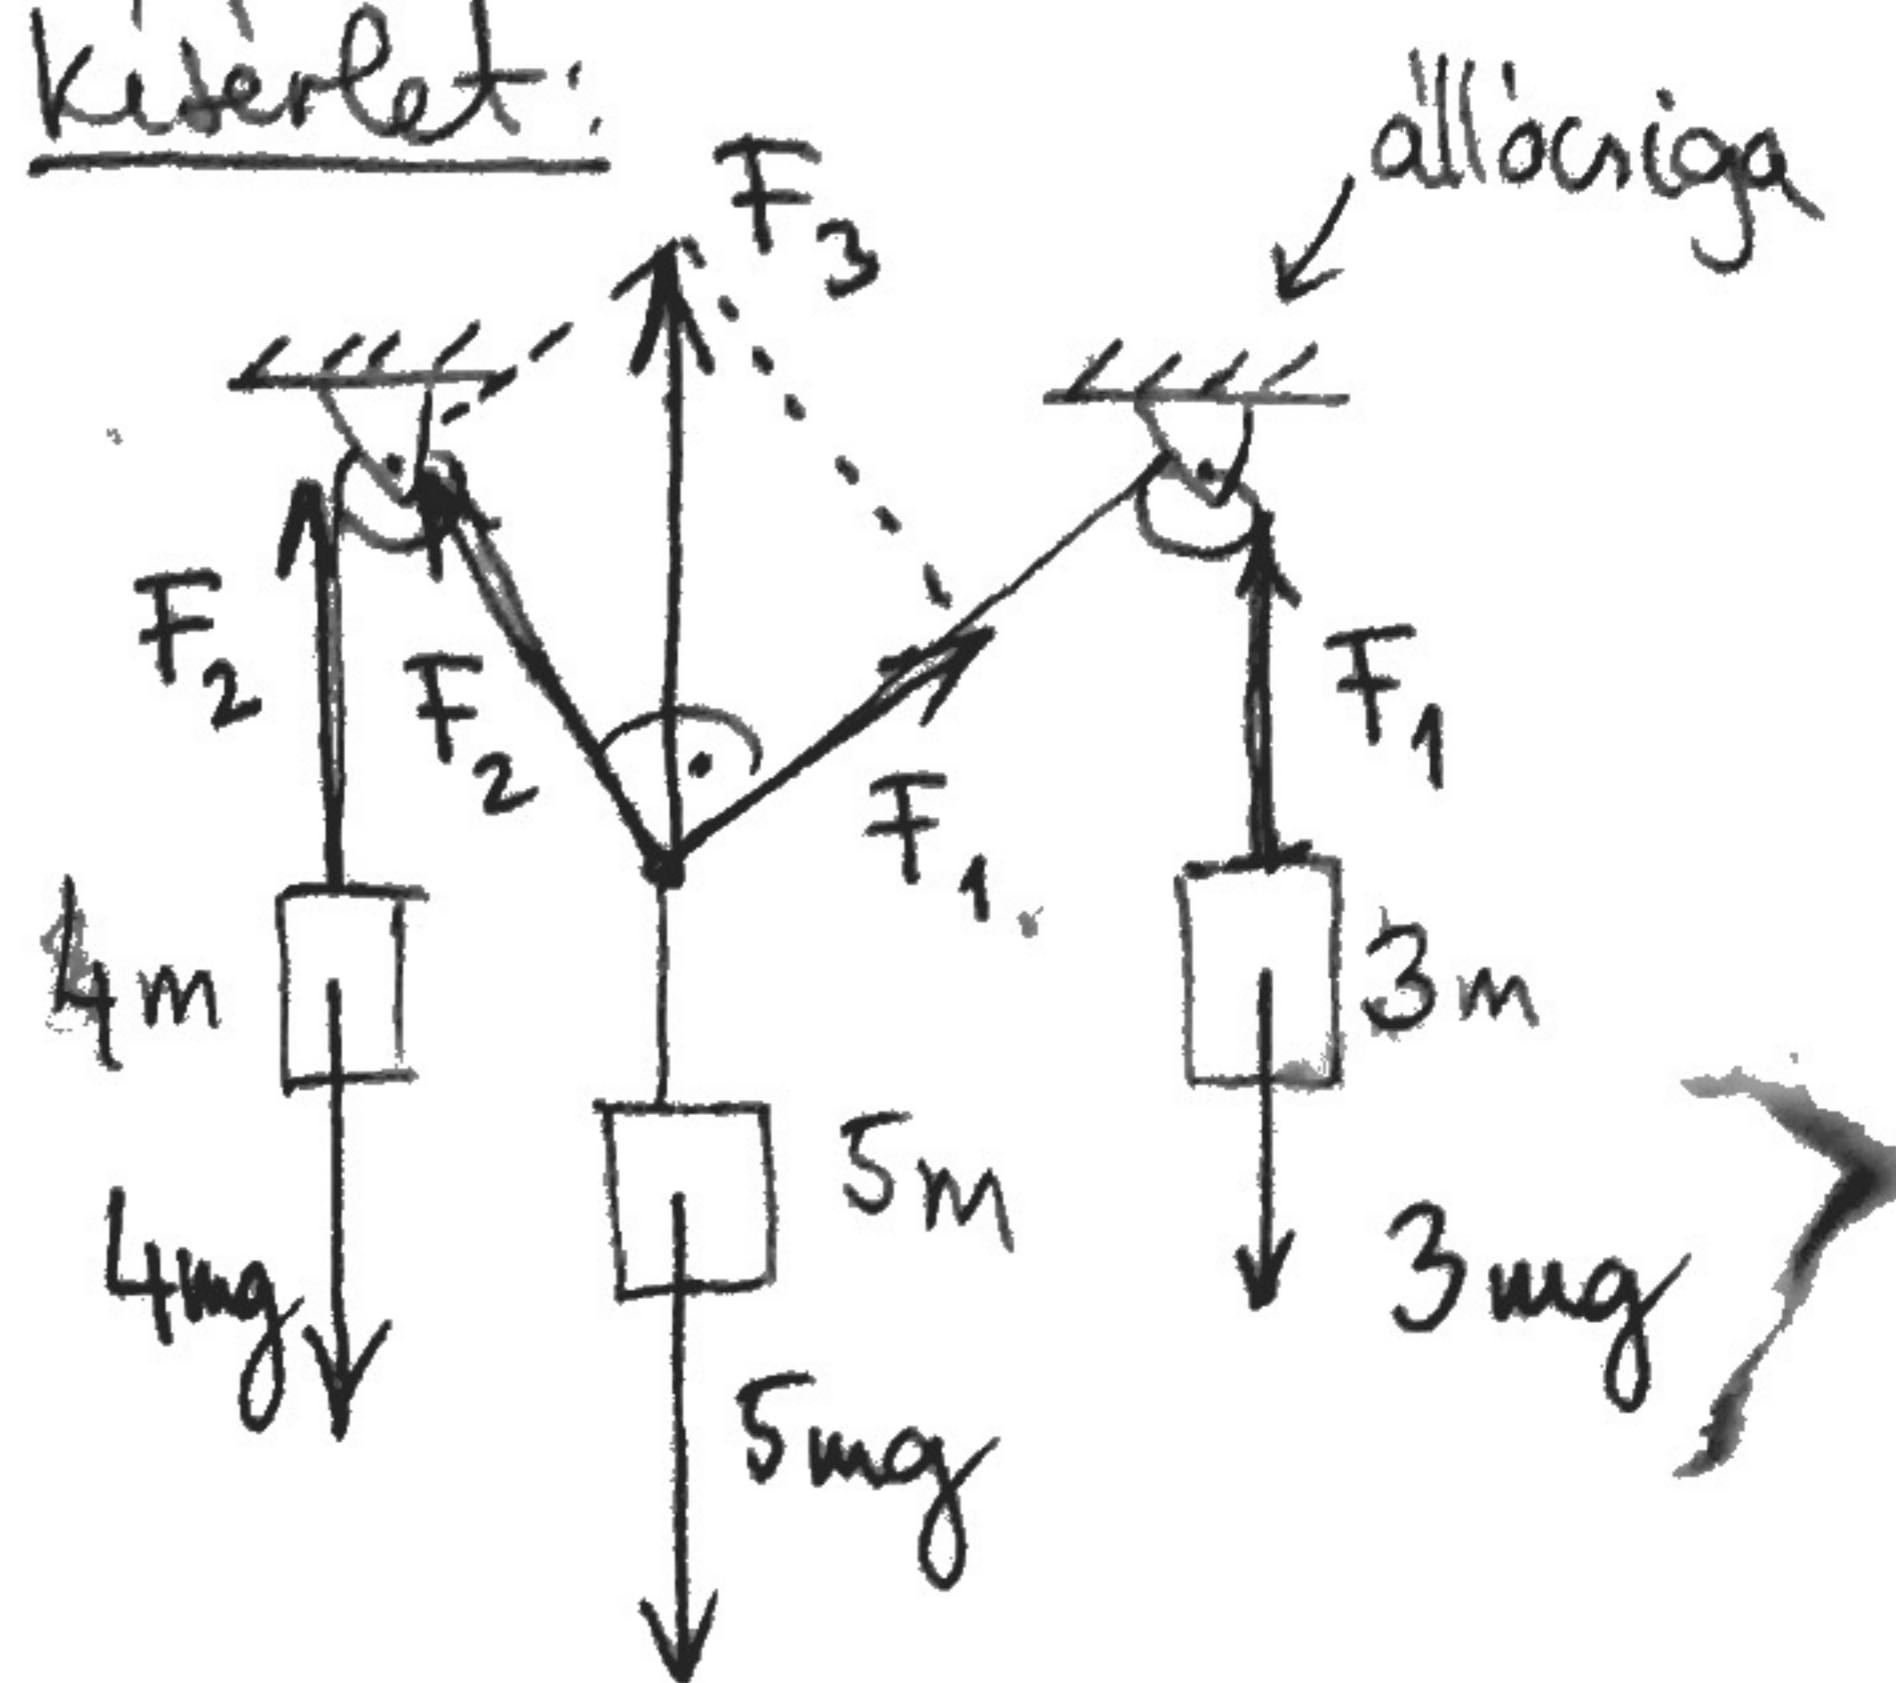 kísérlet:
állócsiga
F3
F2
F2
F1
F1
4m
3m
5m
4mg
3mg
5mg